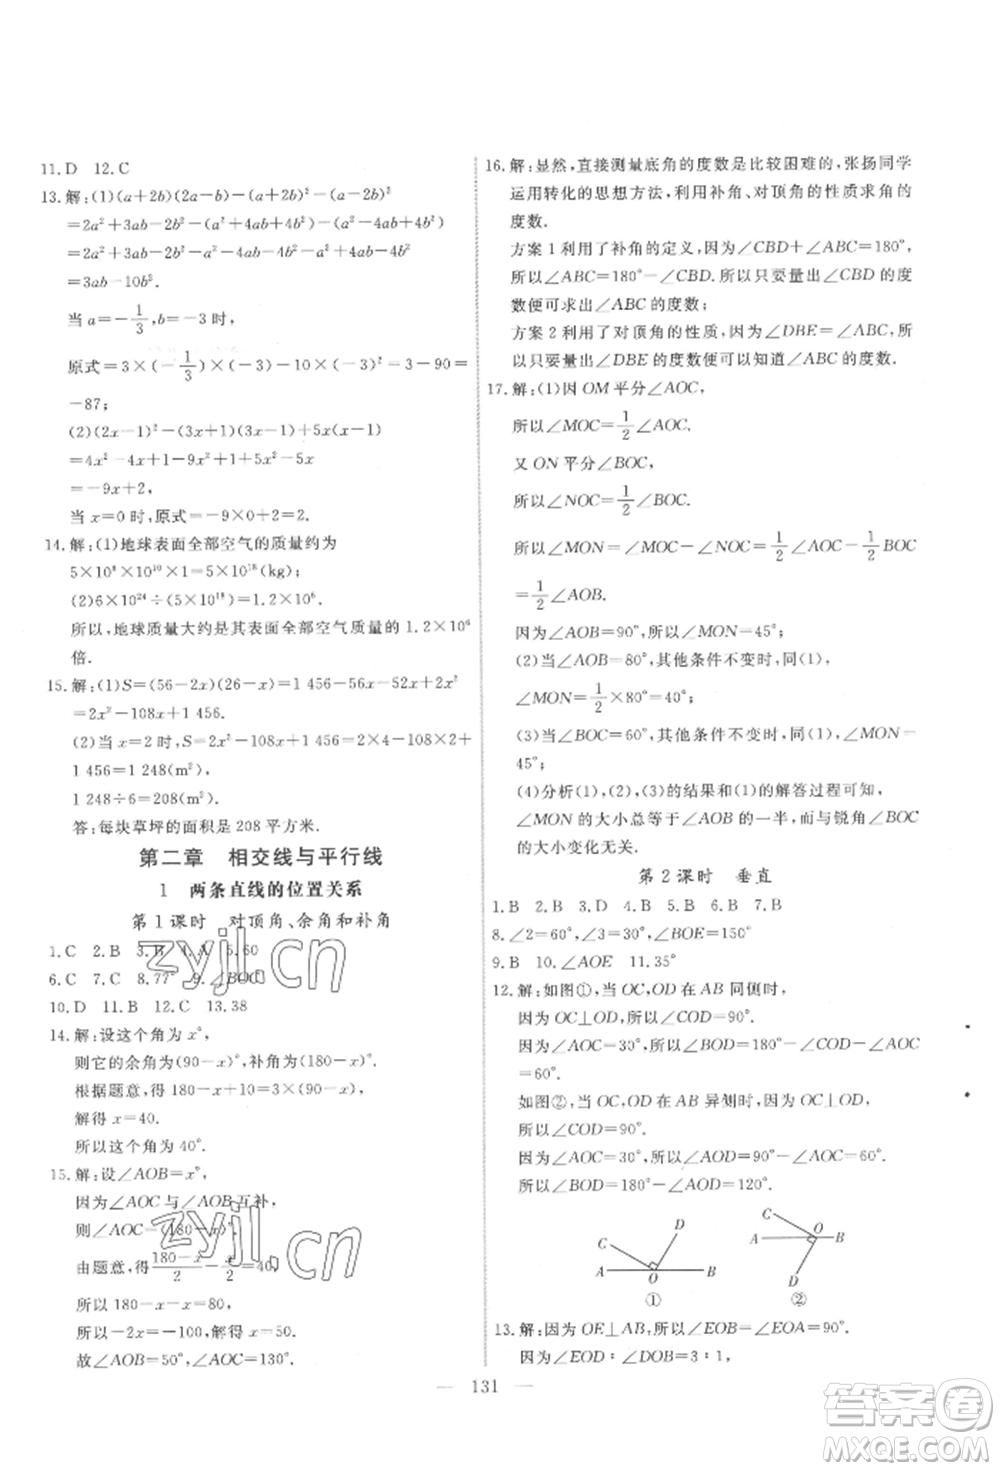 11. D  12. C
13. 解:(1)(a+2b)(2a-b)-(a+2b)²-(a-2b)²
=2a²+3ab-2b²-(a²+4ab+4b²)-(a²-4ab+4b²)
=2a²+3ab-2b²-a²-4ab-4b²-a²+4ab-4b²
=3ab-10b².
当 a=-1/3,b=-3 时,
原式=3×(-1/3)×(-3)-10×(-3)²=3-90=
-87;
(2)(2x-1)²-(3x+1)(3x-1)+5x(x-1)
=4x²-4x+1-(9x²-1)+5x²-5x
=4x²-4x+1-9x²+1+5x²-5x
=-9x+2,
当 x=0 时,原式=-9×0+2=2.
14. 解:(1)地球表面全部空气的质量约为
5×10⁸×10¹⁰×1=5×10¹⁸(kg);
(2)6×10²⁴÷(5×10¹⁸)=1.2×10⁶.
所以,地球质量大约是其表面全部空气质量的 1.2×10⁶
倍.
15. 解:(1)S=(56-2x)(26-x)=1 456-56x-52x+2x²
=2x²-108x+1 456.
(2)当 x=2 时,S=2x²-108x+1 456=2×4-108×2+
1 456=1 248(m²),
1 248÷6=208(m²).
答:每块草坪的面积是 208 平方米.
第二章 相交线与平行线
1 两条直线的位置关系
第 1 课时 对顶角、余角和补角
1. C  2. B  3. B  4. A  5. 60
6. C  7. C  8. 77°  9. ∠BOC
10. D  11. B  12. C  13. 38
14. 解:设这个角为 x°,
则它的余角为(90-x)°,补角为(180-x)°.
根据题意,得 180-x+10=3×(90-x),
解得 x=40.
所以这个角为 40°.
15. 解:设∠AOB=x°,
因为∠AOC 与∠AOB 互补,
则∠AOC=(180-x)°.
由题意,得(180-x)/2-x/2=40,
所以 180-x-x=80,
所以-2x=-100,解得 x=50.
故∠AOB=50°,∠AOC=130°.
16. 解:显然,直接测量底角的度数是比较困难的,张扬同学
运用转化的思想方法,利用补角、对顶角的性质求角的
度数.
方案 1 利用了补角的定义,因为∠CBD+∠ABC=180°,
所以∠ABC=180°-∠CBD.所以只要量出∠CBD 的度
数便可求出∠ABC 的度数;
方案 2 利用了对顶角的性质,因为∠DBE=∠ABC,所
以只要量出∠DBE 的度数便可以知道∠ABC 的度数.
17. 解:(1)因 OM 平分∠AOC,
所以∠MOC=1/2∠AOC.
又 ON 平分∠BOC,
所以∠NOC=1/2∠BOC.
所以∠MON=∠MOC-∠NOC=1/2∠AOC-1/2∠BOC
=1/2∠AOB.
因为∠AOB=90°,所以∠MON=45°;
(2)当∠AOB=80°,其他条件不变时,同(1),
∠MON=1/2×80°=40°;
(3)当∠BOC=60°,其他条件不变时,同(1),∠MON=
45°;
(4)分析(1)、(2)、(3)的结果和(1)的解答过程可知,
∠MON 的大小总等于∠AOB 的一半,而与锐角∠BOC
的大小变化无关.
第 2 课时 垂直
1. B  2. B  3. D  4. B  5. B  6. B  7. B
8. ∠2=60°,∠3=30°,∠BOE=150°
9. B  10. ∠AOE  11. 35°
12. 解:如图①,当 OC,OD 在 AB 同侧时,
因为 OC⊥OD,所以∠COD=90°.
因为∠AOC=30°,所以∠BOD=180°-∠COD-∠AOC
=60°.
如图②,当 OC,OD 在 AB 异侧时,因为 OC⊥OD,
所以∠COD=90°.
因为∠AOC=30°,所以∠AOD=90°-∠AOC=60°.
所以∠BOD=180°-∠AOD=120°.
C D A O B ①
C O A B D ②
13. 解:因为 OE⊥AB,所以∠EOB=∠EOA=90°.
因为∠EOD:∠DOB=3:1,
131
zyjl.cn
zyjl.cn
答案圈
MXQE.COM